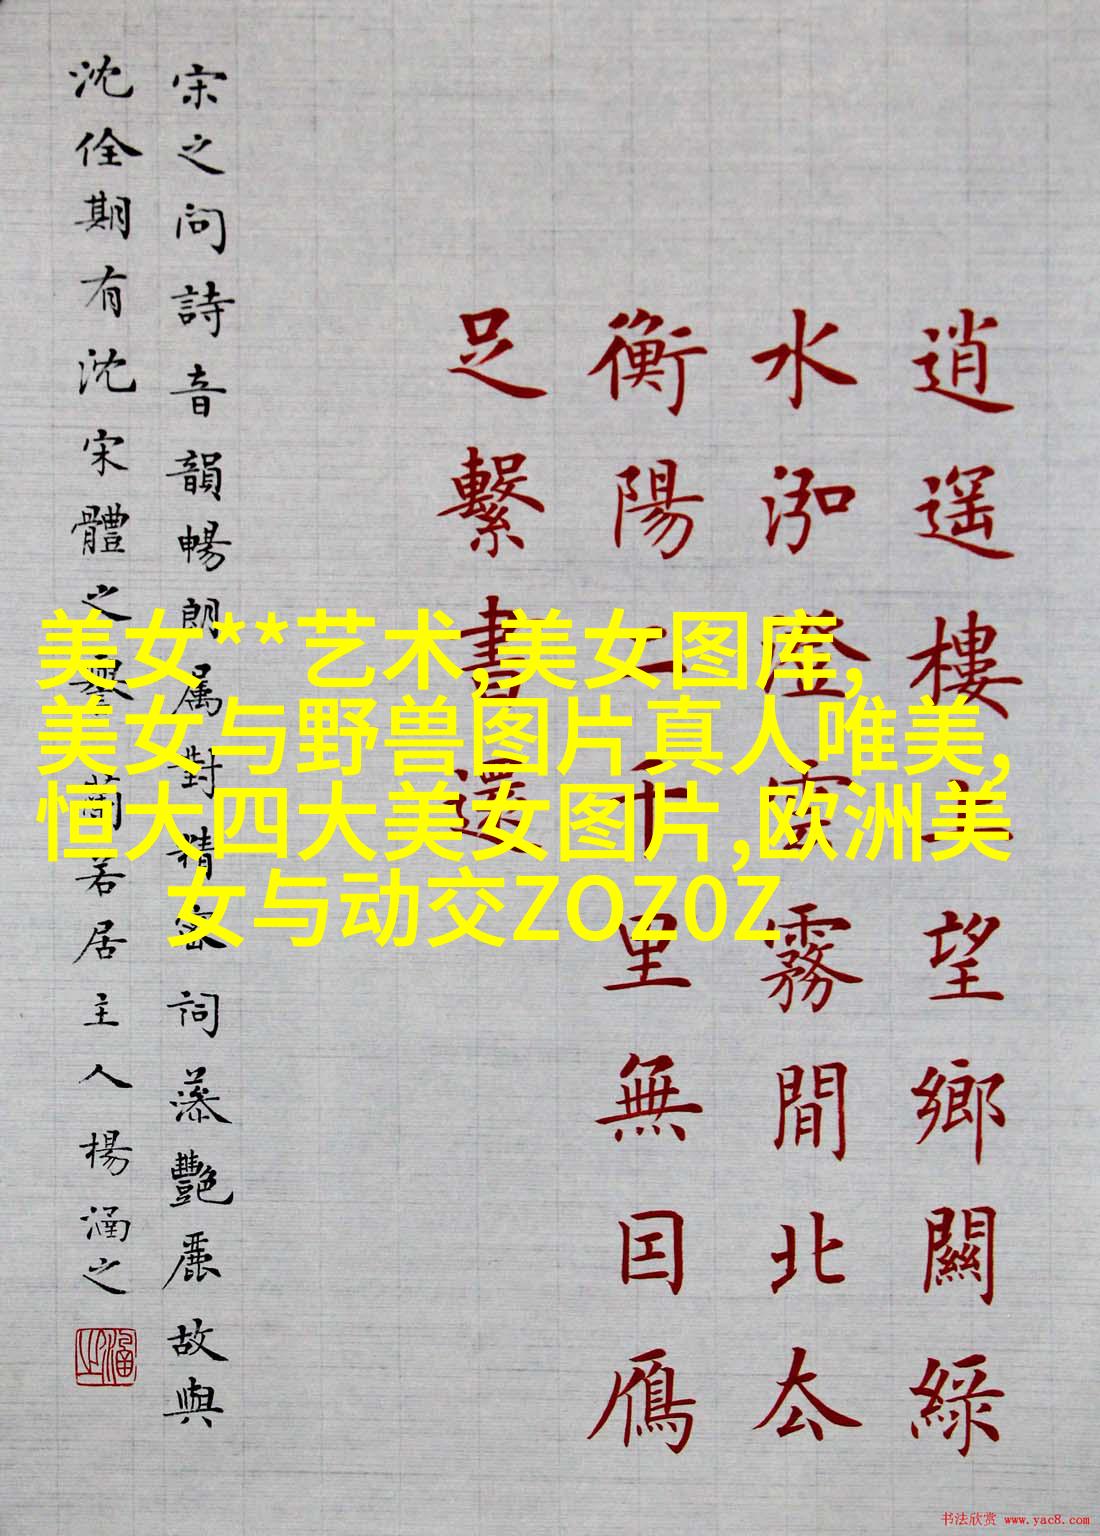 逍遥樓上望鄉關綠
水泓澄雲霧間北厺
衡陽二千里無因雁
足繫書還
宋之问詩音韻暢朗属對精密詞藻艷麗故與
沈佺期有沈宋體之譽蘭若居主人楊涵之
美女**艺术,美女图库,
美女与野兽图片真人唯美,
恒大四大美女图片,欧洲美
女与动交ZOZ0Z
书法欣赏 www.yac8.com